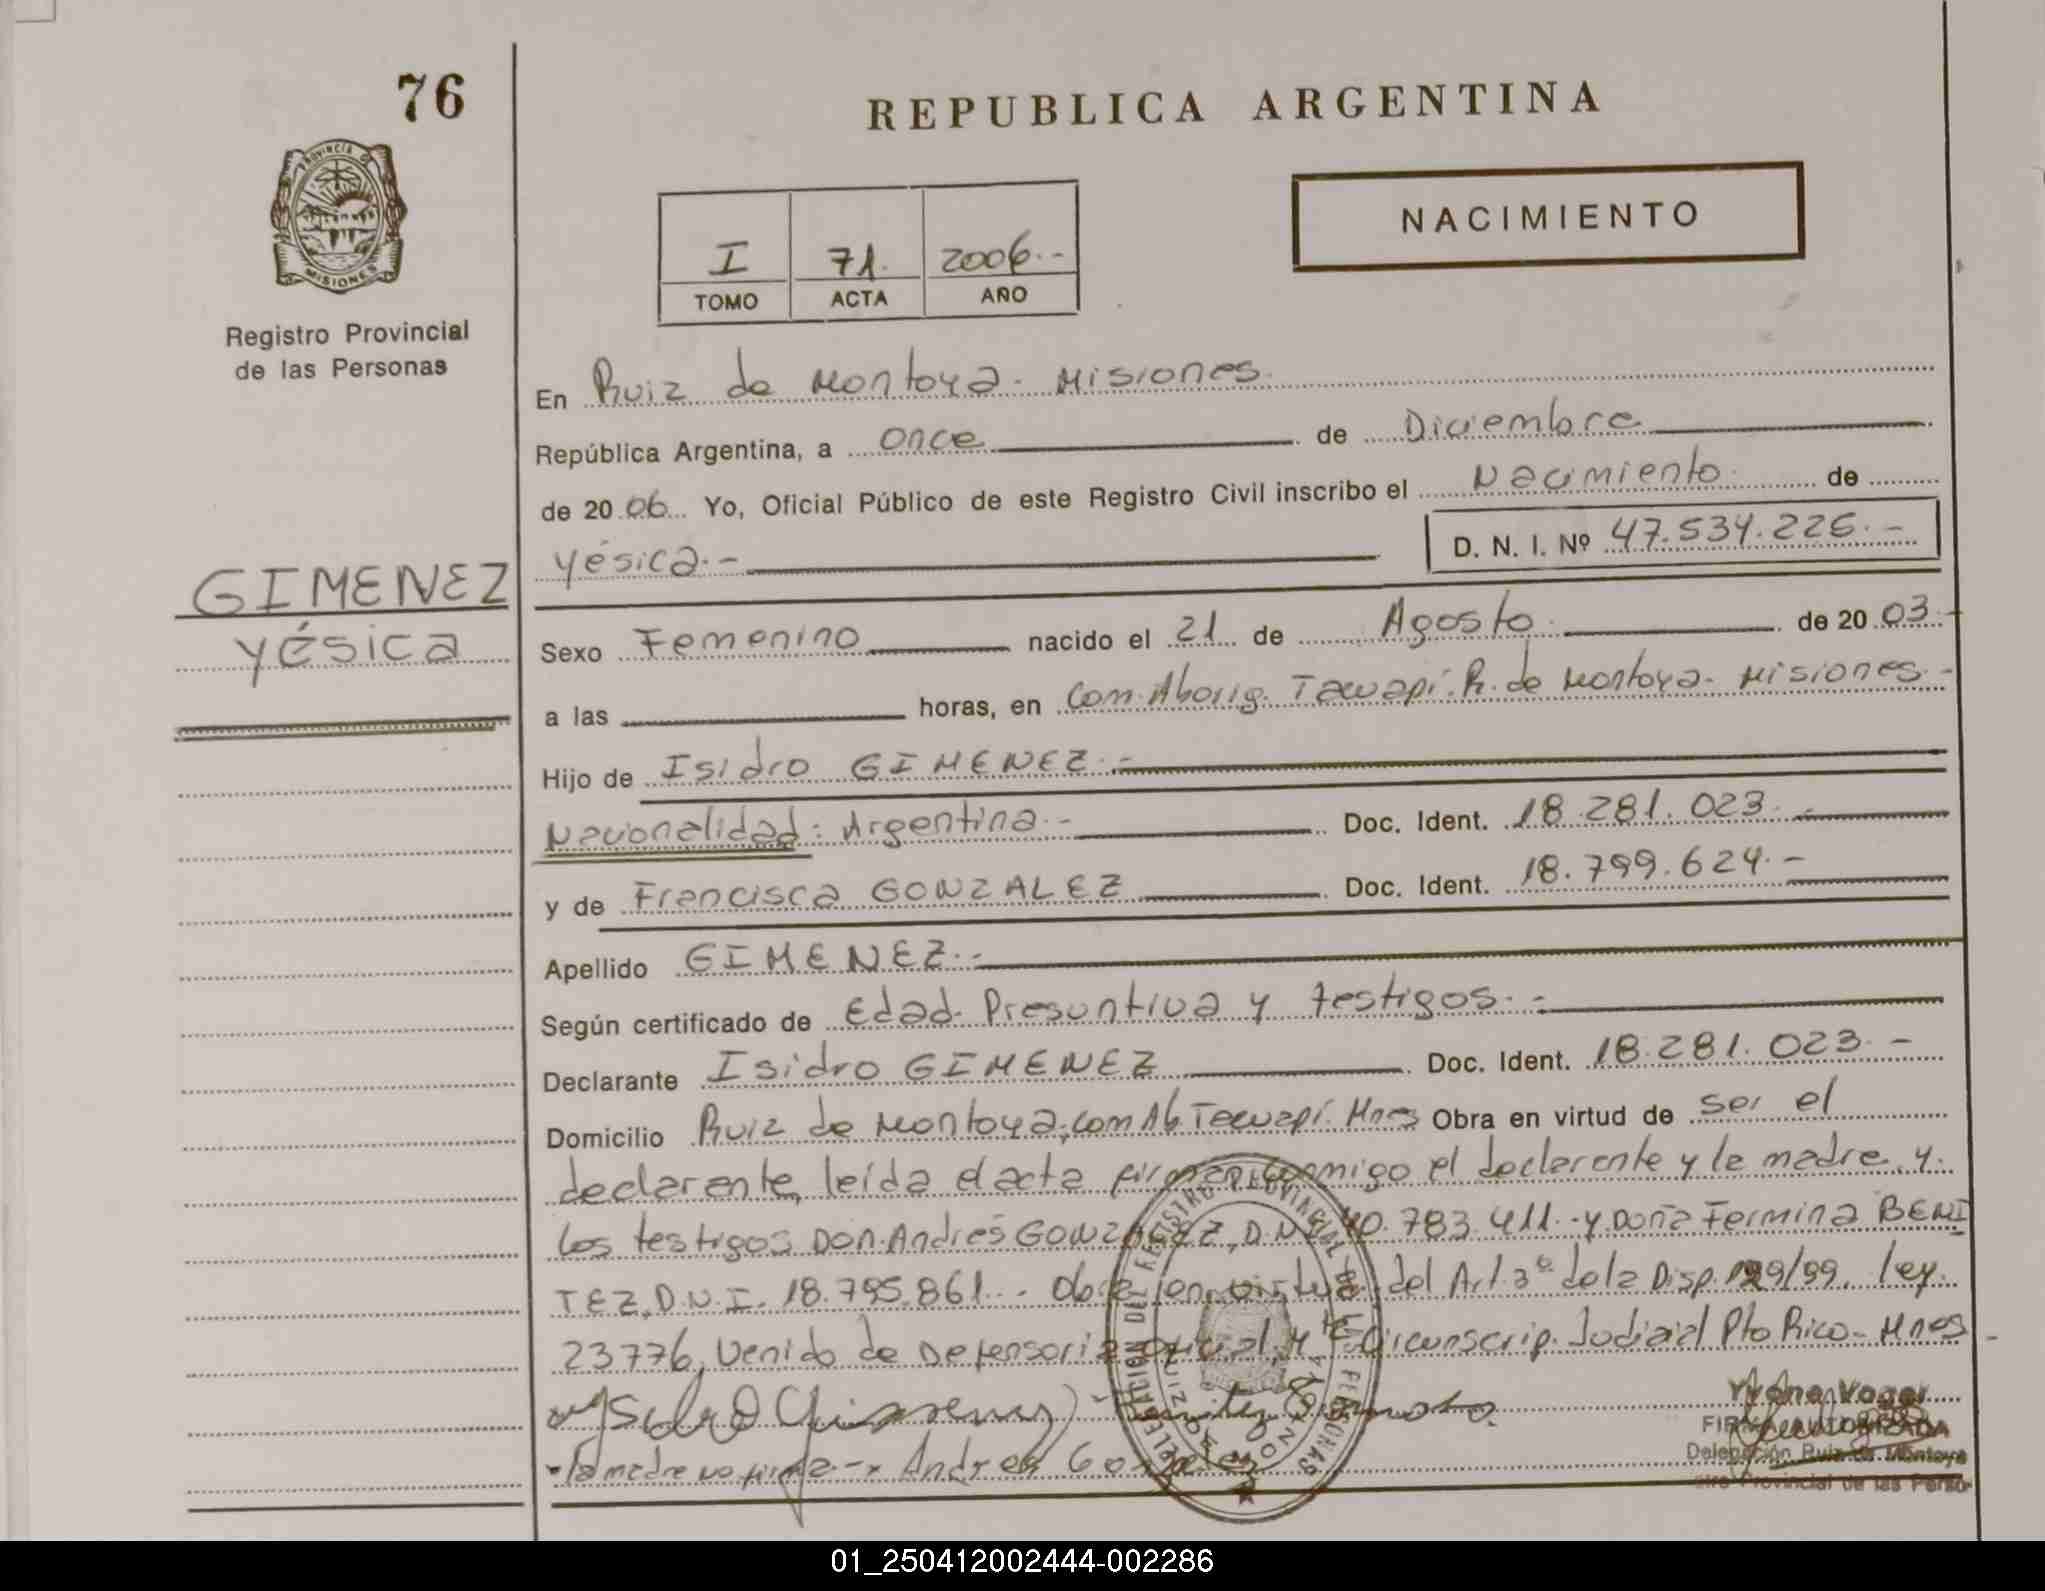 76
REPUBLICA ARGENTINA
PROVINCIA DE
MISIONES
NACIMIENTO
I 71. 2006.-
TOMO ACTA AÑO
Registro Provincial
de las Personas
En Ruiz de Montoya. Misiones.
República Argentina, a once de Diciembre
de 20 06 Yo, Oficial Público de este Registro Civil inscribo el Nacimiento de
D. N. I. Nº 47.534.226.-
Yésica.-
GIMENEZ
Yésica
Sexo Femenino nacido el 21 de Agosto. de 20 03.-
a las horas, en Com. Aborig. Tacuapí. R. de Montoya. Misiones.-
Hijo de Isidro GIMENEZ.-
Nacionalidad: Argentina.- Doc. Ident. 18.281.023.-
y de Francisca GONZALEZ Doc. Ident. 18.799.624.-
Apellido GIMENEZ.-
Según certificado de Edad Presuntiva y testigos.-
Declarante Isidro GIMENEZ Doc. Ident. 18.281.023.-
Domicilio Ruiz de Montoya, com Ab Tacuapí. Mnes Obra en virtud de ser el
declarante, leída el acta firman conmigo el declarante y la madre y
los testigos Don Andrés GONZALEZ, D.N.I. 40.783.411.- y Doña Fermina BENI
TEZ, D.N.I. 18.795.861.- Obra en virtud del Art. 3º de la Disp. 199/99, ley
23776, Venido de Defensoria Oficial, 4ta Circunscrip. Judicial Pto Rico- Mnes -
Isidro Benitez
Yvone
FIRMA AUTORIZADA
-la madre no firma.- Andres Gonzalez
Delegación Ruiz de Montoya
Provincial de las Perso
DELEGACION DEL REGISTRO PROVINCIAL DE LAS PERSONAS
RUIZ DE MONTOYA
01_250412002444-002286